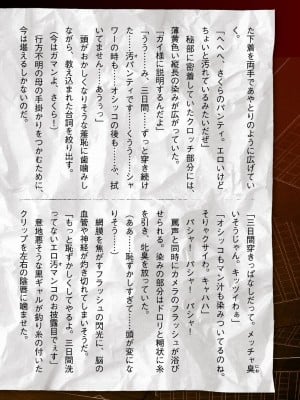 た下着を両手であやとりのように広げてい
く。
「へへへ、さくらのパンティ。エロいけど
ちょいと汚れているみたいだぜ」
秘部に密着していたクロッチ部分には、
薄黄色い縦長の染みが広がっていた。
「カイ様に説明するんだよ」
「うう……み、三日間……ずっと穿き続け
た……汚パンティです……くうう……シャ
ワーの時も……オシッコの後も……ふ、拭
いてません……あううっ」
頭がおかしくなりそうな羞恥に歯噛みし
ながら、教え込まれた台詞を絞り出す。
（今はガマンよ、さくら…！）
行方不明の母の手掛かりをつかむために、
今は堪えるしかないのだ。
「三日間穿きっぱなしだって。メッチャ臭
いそうじゃん。キッツイわぁ」
「オシッコもマン汁も染みついてるのね。
そりゃクサイわ。キャハハ」
パシャー！　パシャー！　パシャー！
罵声と同時にカメラのフラッシュが浴び
せられる。染みの部分はドロリと糊状に糸
を引き、牝臭を放っていた。
（ああ……恥ずかしすぎて……頭が変にな
りそう……）
網膜を焦がすフラッシュの閃光に、脳の
血管や神経が灼き切れてしまいそうだ。
「もっと恥ずかしくしてやるよ。三日間洗
ってないエロ汚マンコのお披露目でぇす」
意地悪そうな黒ギャルが釣り糸の付いた
クリップを左右の陰唇に噛ませた。